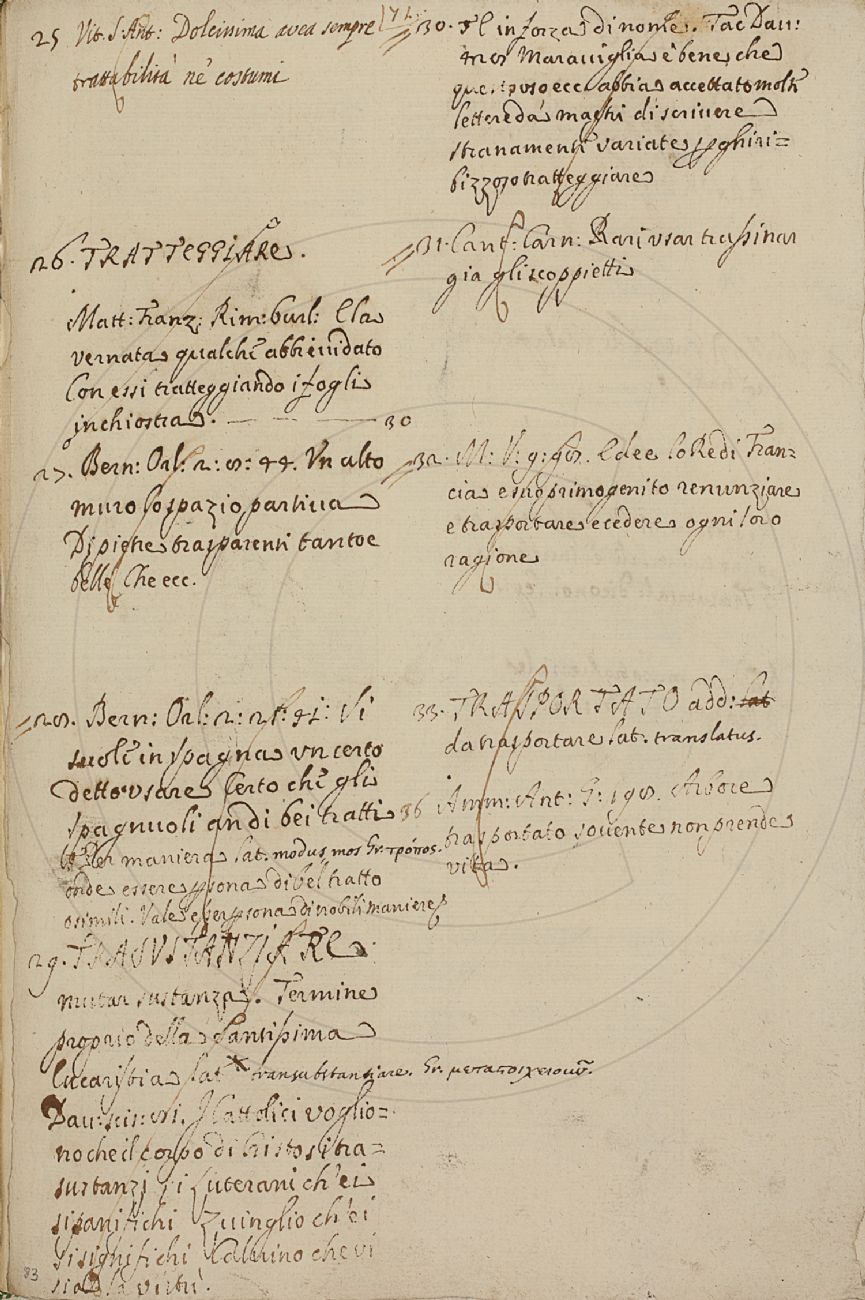 25 Vit. S. Ant: Dolcissima avea sempre
trattabilità ne' costumi
26. TRATTEGGIARE.
Matt: Franz: Rim: burl: E la
vernata qualche abbi evidato
Con essi tratteggiando i fogli
inchiostra. — — 30
27. Bern: Orl: 2: 8: 44. Un alto
muro lo spazio partiva
Di pietre trasparenti tanto e
belle Che ecc.
28. Bern: Orl: 2: 25: 42: Si
suole in spagna un certo
detto usare Certo che gli
spagnuoli an di bei tratti 36
Per maniera Lat. modus, mos Gr. τρόπος.
onde essere psona di bel tratto
o simili. Vale esser psona di nobili maniere
29. TRASUSTANZIARE
mutar sustanza. Termine
proprio della Santissima
Eucaristia Lat transubstantiare. Gr. μεταστοιχειοῦν.
Dav: Scis: 81. I Cattolici voglio=
no che il corpo di Cristo si tra=
sustanzj i Luterani ch'ei
si panifichi Zuinglio ch'ei
si significhi Calvino che vi
sia la virtù.
30. E in forza di nome. Tac Dav:
Maraviglia è bene che
ecc abbia accettato molte
lettere da' mastri di scrivere
stranamente variate, p ghiri=
bizzoso tratteggiare
31. Cant: Carn: Rari usar trassinar
gia gli scoppietti
32. M: V: 9: 98. E dee lo Re di Fran=
cia e suo primogenito renunziare
e trasportare e cedere ogni loro
ragione
33. TRASPORTATO add: Lat
da trasportare Lat. translatus.
Amm: Ant: G: 198. Arbore
trasportato sovente non prende
vita.
83